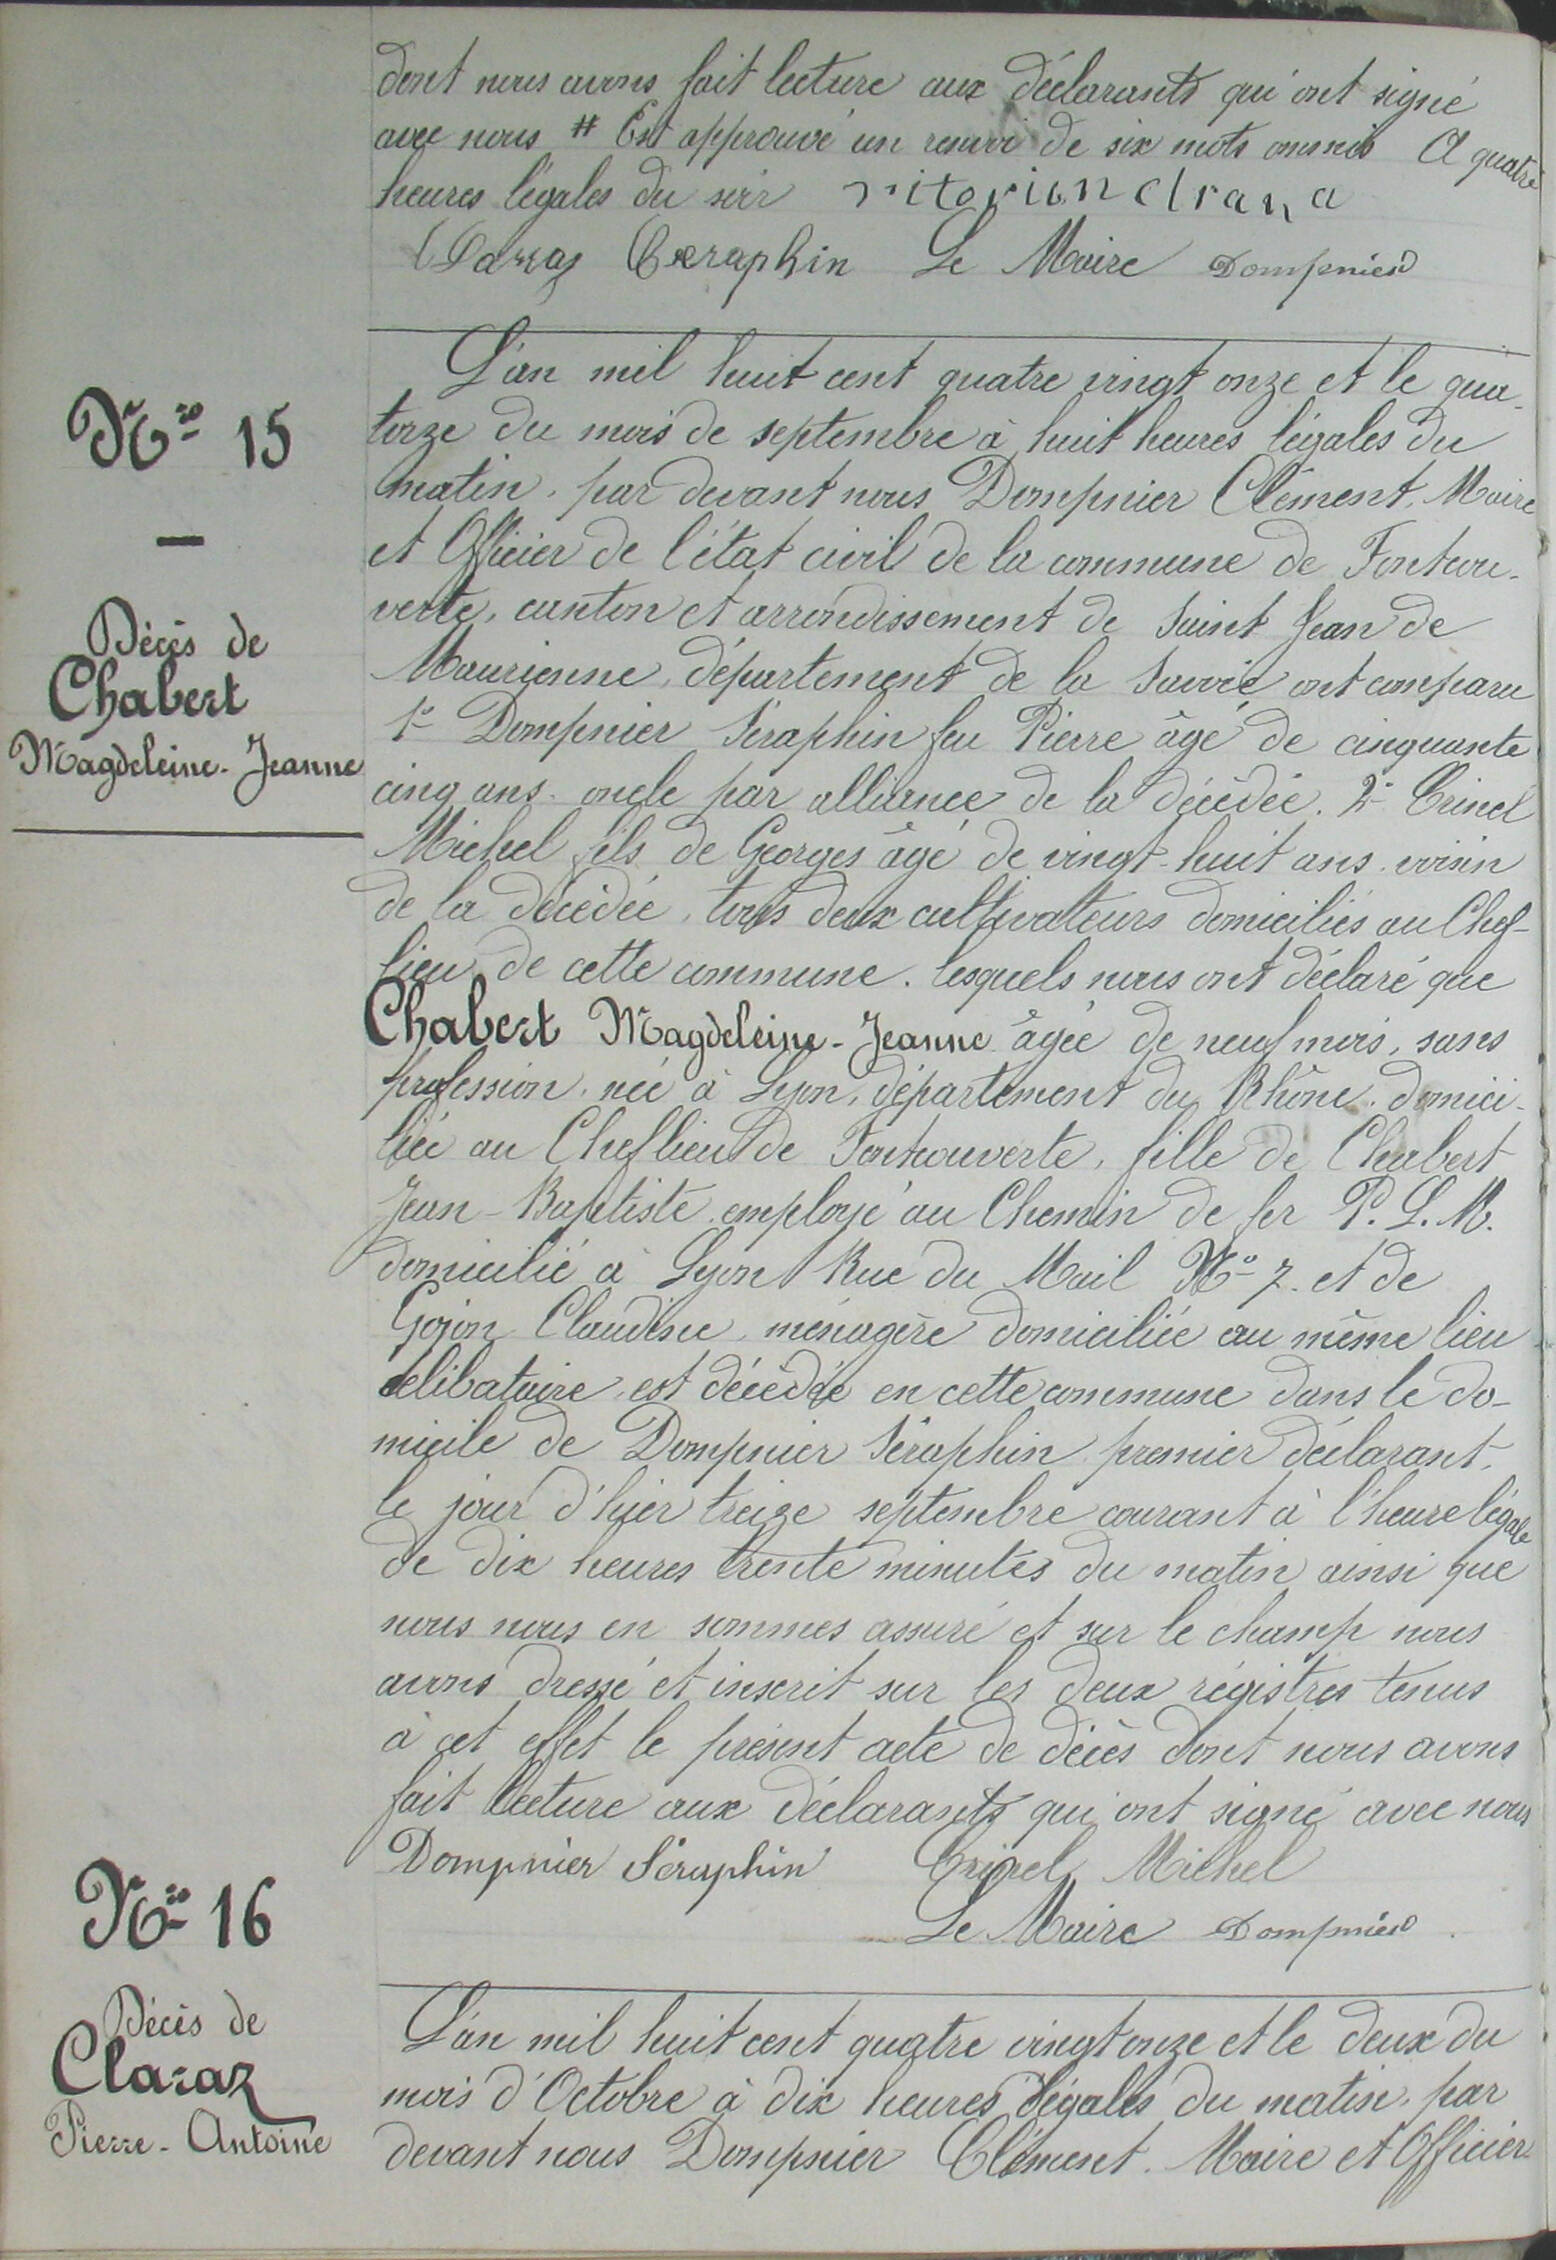 dont nous avons fait lecture aux déclarants qui ont signé
avec nous # Est approuvé un renvoi de six mots ommis A quatre
heures légales du soir
Darraz Seraphin Le Maire Dompnier
L'an mil huit cent quatre vingt onze et le qua-
torze du mois de septembre à huit heures légales du
matin, par devant nous Dompnier Clément, Maire
et Officier de l'état civil de la commune de Fontcou-
verte, canton et arrondissement de Saint Jean de
Maurienne, département de la Savoie ont comparu
1° Dompnier Séraphin feu Pierre âgé de cinquante
cinq ans oncle par alliance de la décédée. 2° Crinel
Michel fils de Georges âgé de vingt-huit ans voisin
de la décédée, tous deux cultivateurs domiciliés au Chef-
lieu de cette commune. lesquels nous ont déclaré que
Chabert Magdeleine-Jeanne âgée de neuf mois, sans
profession, née à Lyon, département du Rhône, domici-
liée au Cheflieu de Fontcouverte, fille de Chabert
Jean-Baptiste employé au Chemin de fer P. L. M.
domicilié à Lyon Rue du Mail N° 7. et de
Gojon Claudine, ménagère domiciliée au même lieu
célibataire, est décédée en cette commune dans le do-
micile de Dompnier Séraphin premier déclarant,
le jour d'hier treize septembre courant à l'heure légale
de dix heures trente minutes du matin ainsi que
nous nous en sommes assuré et sur le champ nous
avons dressé et inscrit sur les deux régistres tenus
à cet effet le présent acte de décès dont nous avons
fait lecture aux déclarants qui ont signé avec nous
Dompnier Séraphin Crinel Michel
Le Maire Dompnier
L'an mil huit cent quatre vingt onze et le deux du
mois d'Octobre à dix heures légales du matin, par
devant nous Dompnier Clément. Maire et Officier
N° 15
Décès de
Chabert
Magdeleine-Jeanne
N° 16
Décès de
Claraz
Pierre-Antoine